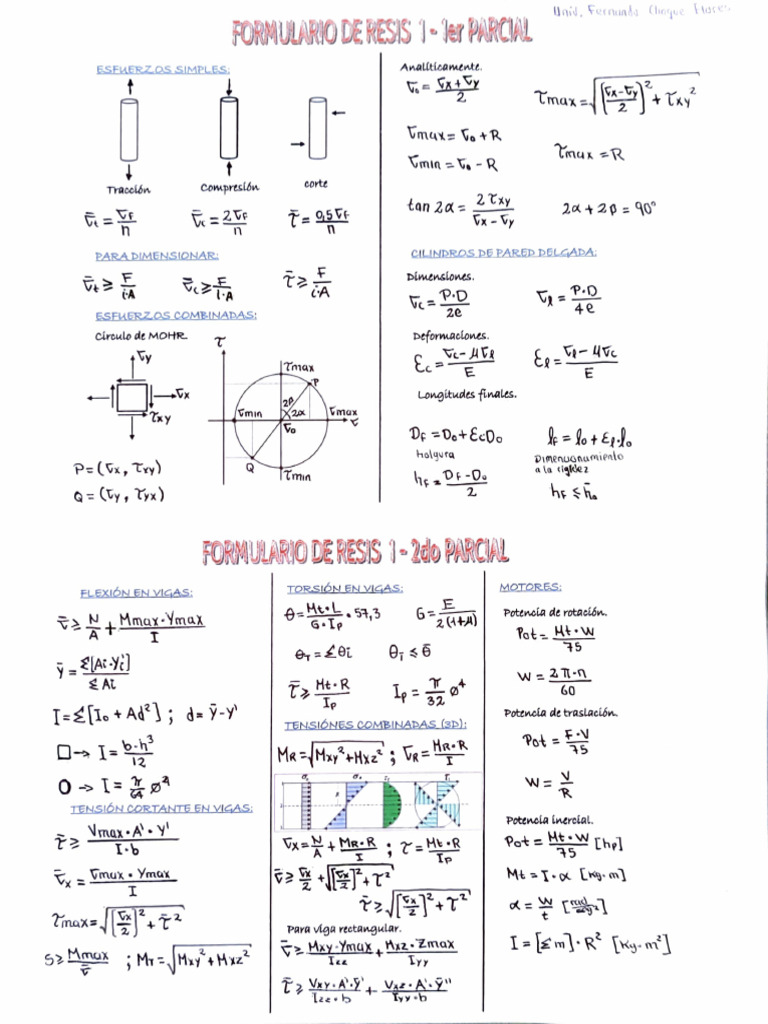 Univ. Fernando Choque Flores
FORMULARIO DE RESIS 1 - 1er PARCIAL
ESFUERZOS SIMPLES:
Tracción
Compresión
corte
σ̄t = σF/n
σ̄c = 2σF/n
τ̄ = 0,5σF/n
PARA DIMENSIONAR:
σ̄t ≥ F/i·A
σ̄c ≥ F/i·A
τ̄ ≥ F/i·A
ESFUERZOS COMBINADAS:
Circulo de MOHR.
σy
σx
τxy
τ
τmax
P
2β
2α
σmin
σmax
σ
σo
Q
τmin
P = (σx, τxy)
Q = (σy, τyx)
Analíticamente.
σo = (σx + σy)/2
τmax = √([(σx - σy)/2]² + τxy²)
σmax = σo + R
σmin = σo - R
τmax = R
tan 2α = 2τxy/(σx - σy)
2α + 2β = 90°
CILINDROS DE PARED DELGADA:
Dimensiones.
σc = P·D/2e
σl = P·D/4e
Deformaciones.
εc = (σc - μσl)/E
εl = (σl - μσc)/E
Longitudes finales.
DF = Do + εcDo
lf = lo + εl·lo
holgura
hF = (DF - Do)/2
Dimensionamiento
a la rigidez
hF ≤ h̄o
FORMULARIO DE RESIS 1 - 2do PARCIAL
FLEXIÓN EN VIGAS:
σ̄ ≥ N/A + Mmax·Ymax/I
ȳ = Σ[Ai·Yi]/ΣAi
I = Σ[Io + Ad²] ; d = ȳ - y'
□ → I = b·h³/12
O → I = π/64 ø⁴
TENSIÓN CORTANTE EN VIGAS:
τ̄ ≥ Vmax·A'·Y'/I·b
σ̄x = σmax·Ymax/I
τmax = √([σx/2]² + τ̄²)
S ≥ Mmax/σ̄ ; MT = √(Mxy² + Mxz²)
TORSIÓN EN VIGAS:
θ = Mt·L/G·Ip · 57,3
G = E/2(1+μ)
θT = Σθi
θT ≤ θ̄
τ̄ ≥ Mt·R/Ip
Ip = π/32 ø⁴
TENSIÓNES COMBINADAS (3D):
MR = √(Mxy² + Mxz²) ; σR = MR·R/I
σx = N/A + MR·R/I ; τ = Mt·R/Ip
σ̄ ≥ σx/2 + √([σx/2]² + τ²)
τ̄ ≥ √([σx/2]² + τ²)
Para viga rectangular.
σ̄ ≥ Mxy·Ymax/Izz + Mxz·Zmax/Iyy
τ̄ ≥ Vxy·A'·ȳ'/Izz·b + Vxz·A'·ȳ''/Iyy·b
MOTORES:
Potencia de rotación.
Pot = Mt·W/75
W = 2π·n/60
Potencia de traslación.
Pot = F·V/75
W = V/R
Potencia inercial.
Pot = Mt·W/75 [hp]
Mt = I·α [Kg·m]
α = W/t
I = [Σm]·R² [Kg·m²]